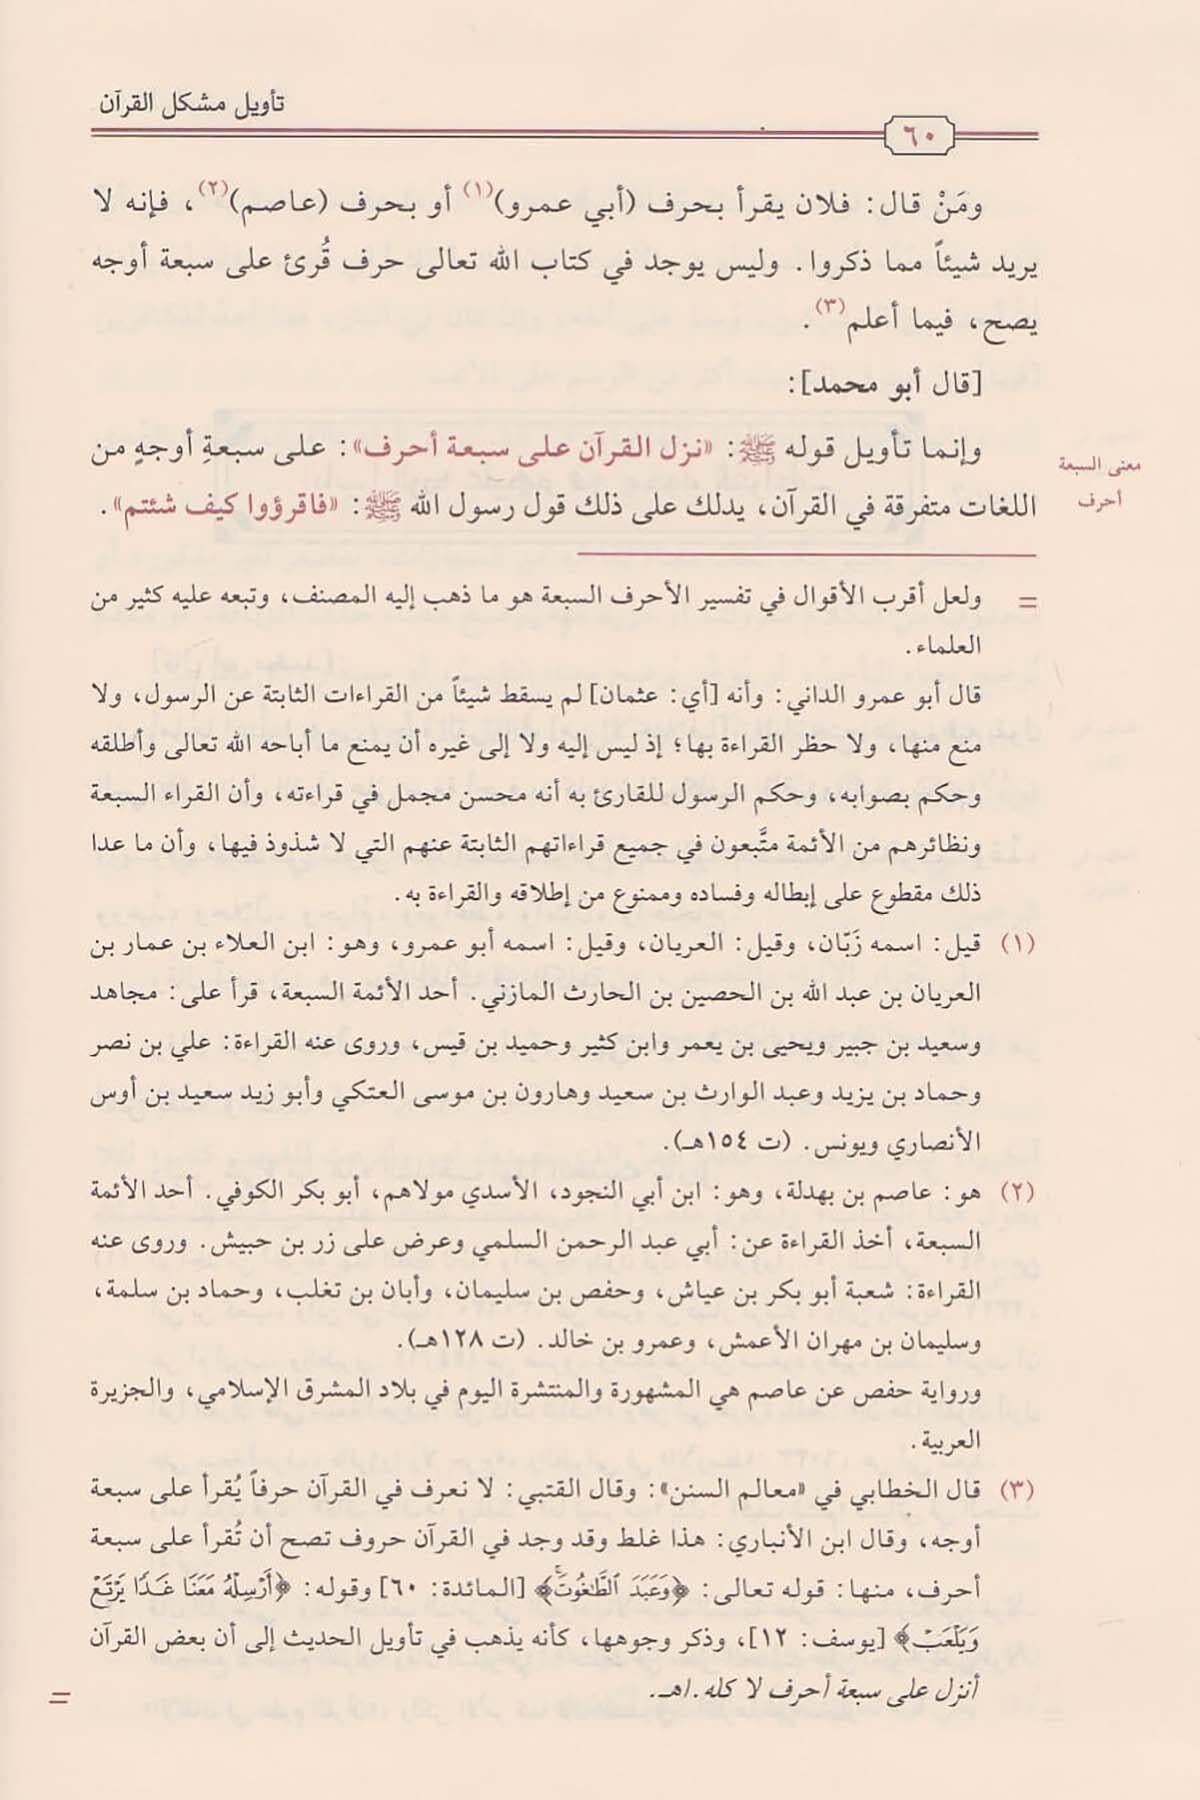 تأويل مشكل القرآن
٦٠
ومَنْ قال: فلان يقرأ بحرف (أبي عمرو)(١) أو بحرف (عاصم)(٢)، فإنه لا
يريد شيئاً مما ذكروا. وليس يوجد في كتاب الله تعالى حرف قُرئ على سبعة أوجه
يصح، فيما أعلم(٣).
[قال أبو محمد]:
وإنما تأويل قوله ﷺ: «نزل القرآن على سبعة أحرف»: على سبعةِ أوجهٍ من
معنى السبعة
اللغات متفرقة في القرآن، يدلك على ذلك قول رسول الله ﷺ: «فاقرؤوا كيف شئتم».
أحرف
= ولعل أقرب الأقوال في تفسير الأحرف السبعة هو ما ذهب إليه المصنف، وتبعه عليه كثير من
العلماء.
قال أبو عمرو الداني: وأنه [أي: عثمان] لم يسقط شيئاً من القراءات الثابتة عن الرسول، ولا
منع منها، ولا حظر القراءة بها؛ إذ ليس إليه ولا إلى غيره أن يمنع ما أباحه الله تعالى وأطلقه
وحكم بصوابه، وحكم الرسول للقارئ به أنه محسن مجمل في قراءته، وأن القراء السبعة
ونظائرهم من الأئمة متَّبعون في جميع قراءاتهم الثابتة عنهم التي لا شذوذ فيها، وأن ما عدا
ذلك مقطوع على إبطاله وفساده وممنوع من إطلاقه والقراءة به.
(١) قيل: اسمه زَبّان، وقيل: العريان، وقيل: اسمه أبو عمرو، وهو: ابن العلاء بن عمار بن
العريان بن عبد الله بن الحصين بن الحارث المازني. أحد الأئمة السبعة، قرأ على: مجاهد
وسعيد بن جبير ويحيى بن يعمر وابن كثير وحميد بن قيس، وروى عنه القراءة: علي بن نصر
وحماد بن يزيد وعبد الوارث بن سعيد وهارون بن موسى العتكي وأبو زيد سعيد بن أوس
الأنصاري ويونس. (ت ١٥٤هـ).
(٢) هو: عاصم بن بهدلة، وهو: ابن أبي النجود، الأسدي مولاهم، أبو بكر الكوفي. أحد الأئمة
السبعة، أخذ القراءة عن: أبي عبد الرحمن السلمي وعرض على زر بن حبيش. وروى عنه
القراءة: شعبة أبو بكر بن عياش، وحفص بن سليمان، وأبان بن تغلب، وحماد بن سلمة،
وسليمان بن مهران الأعمش، وعمرو بن خالد. (ت ١٢٨هـ).
ورواية حفص عن عاصم هي المشهورة والمنتشرة اليوم في بلاد المشرق الإسلامي، والجزيرة
العربية.
(٣) قال الخطابي في «معالم السنن»: وقال القتبي: لا نعرف في القرآن حرفاً يُقرأ على سبعة
أوجه، وقال ابن الأنباري: هذا غلط وقد وجد في القرآن حروف تصح أن تُقرأ على سبعة
أحرف، منها: قوله تعالى: ﴿وَعَبَدَ ٱلطَّٰغُوتَۚ﴾ [المائدة: ٦٠] وقوله: ﴿أَرْسِلْهُ مَعَنَا غَدًا يَرْتَعْ
وَيَلْعَبْ﴾ [يوسف: ١٢]، وذكر وجوهها، كأنه يذهب في تأويل الحديث إلى أن بعض القرآن
أنزل على سبعة أحرف لا كله. اهـ. =